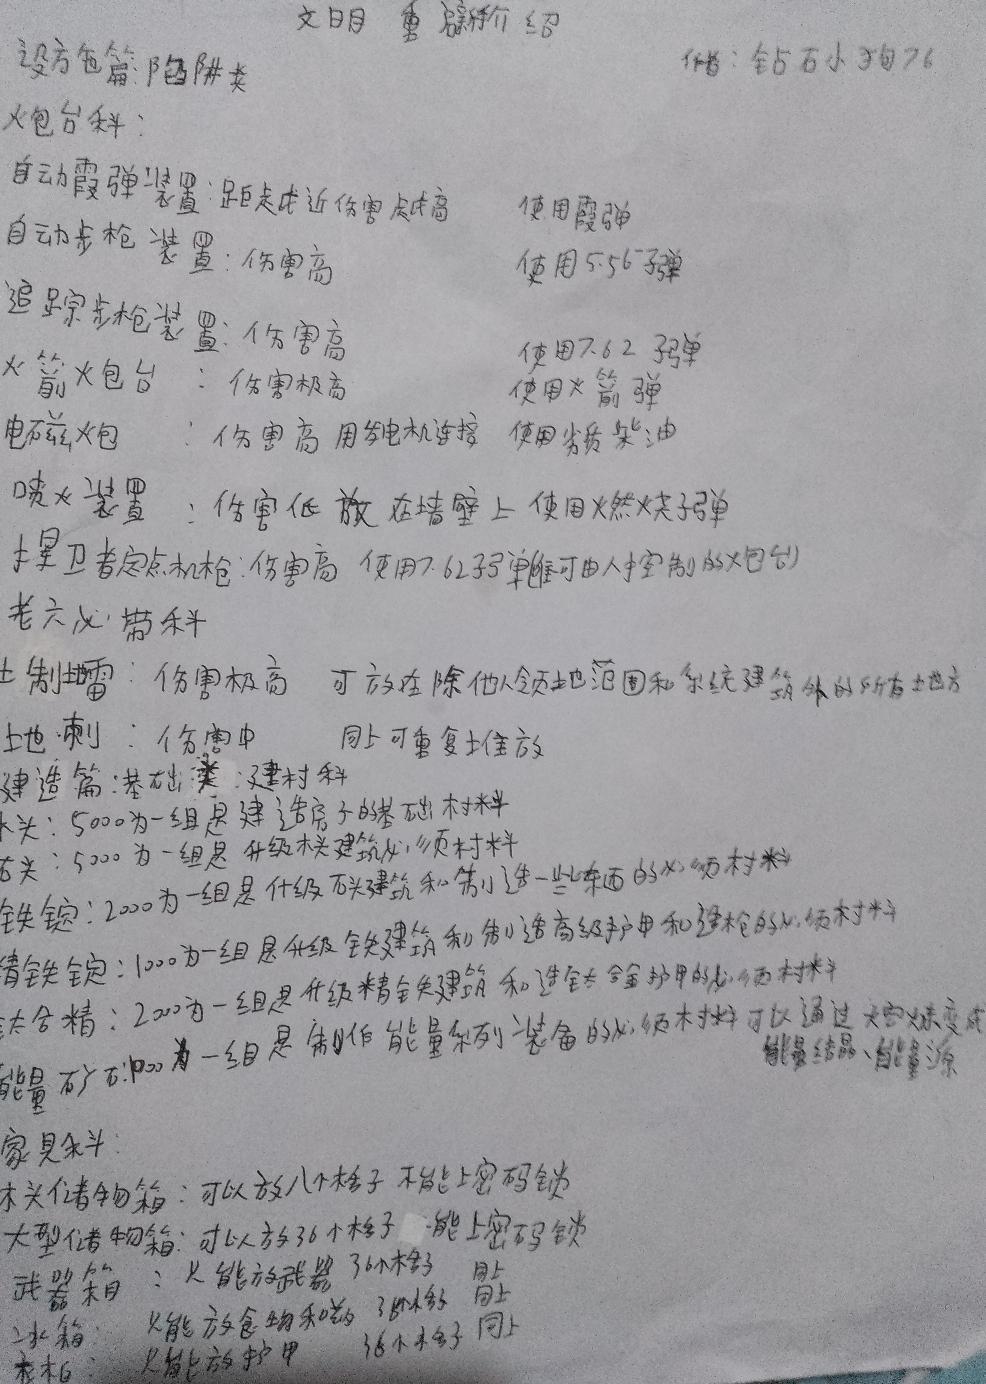 文明 重启 介绍
作者：钻石小狗76
设方包篇：陷阱类
火包台科：
自动霞弹装置：距走戉近伤害走戉高 使用霞弹
自动步枪装置：伤害高 使用5.56子弹
追踪步枪装置：伤害高 使用7.62子弹
火箭火包台：伤害极高 使用火箭弹
电磁火包：伤害高 用发电机连接 使用劣质柴油
喷火装置：伤害低 放在墙壁上 使用火燃烧子弹
捍卫者定点机枪：伤害高 使用7.62子弹(唯可由人手空制的火包台)
老六必带科
土制地雷：伤害极高 可放在除他人领地范围和系统建筑外的所有土地方
土地刺：伤害中 同上可重复堆放
建造篇：基础类：建材科
木头：5000为一组是建造房子的基础材料
石头：5000为一组是升级木头建筑必须材料
铁锭：2000为一组是升级石头建筑和制造一些东西的必须材料
精铁锭：1000为一组是升级铁建筑和制造高级护甲和造枪的必须材料
钛合精：2000为一组是升级精铁建筑和造钛合金护甲的必须材料
能量矿石：1000为一组是制作能量系列装备的必须材料可以通过 变成
能量结晶、能量源
家具科：
木头储物箱：可以放八个格子 不能上密码锁
大型储物箱：可以放36个格子 能上密码锁
武器箱：只能放武器 36个格子 同上
冰箱：只能放食物和药 36个格子 同上
衣柜：只能放护甲 36个格子 同上